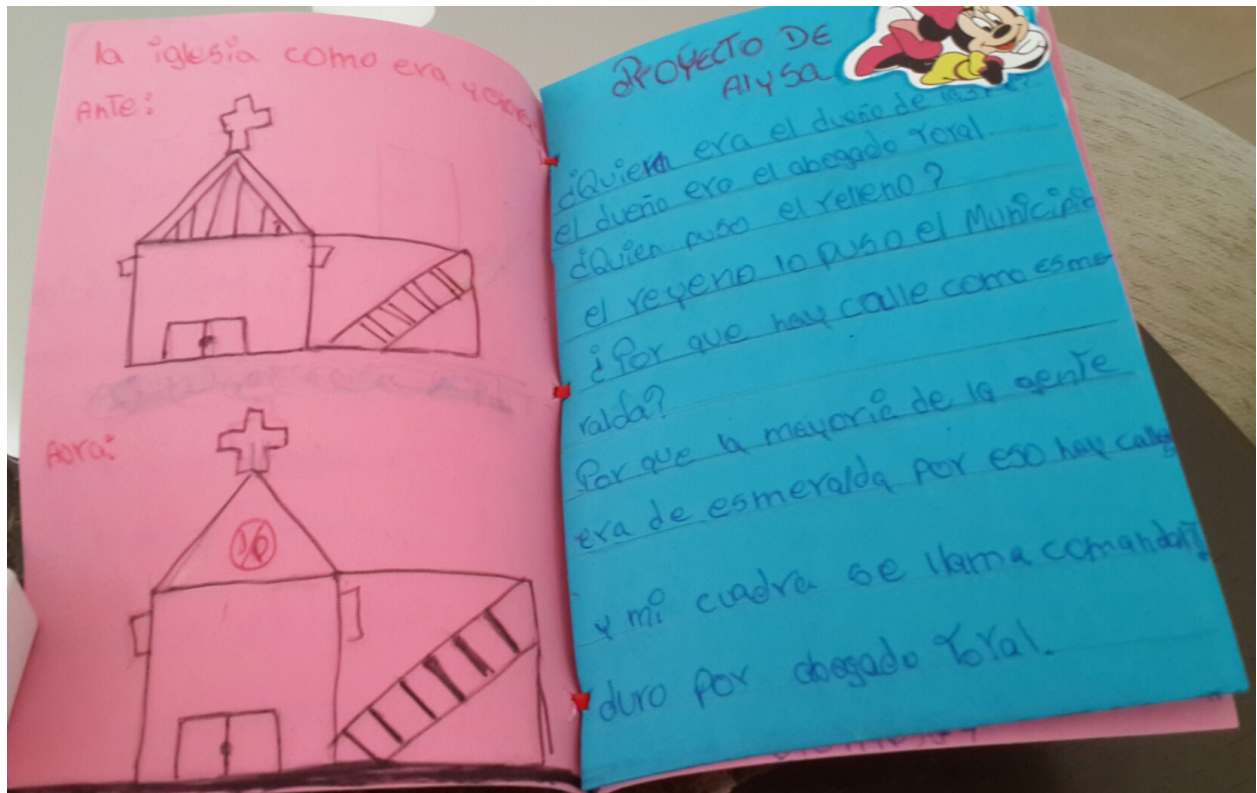 la iglesia como era y aora
Ante:
Aora:
PROYECTO DE
Alysa
¿Quien era el dueño de
el dueño era el abogado Toral
¿Quien puso el relleno?
el reyeno lo puso el Municipio
¿Por que hay calle como esme
ralda?
Por que la mayoria de la gente
era de esmeralda por eso hay calle
y mi cuadra se llama
duro por abogado Toral.